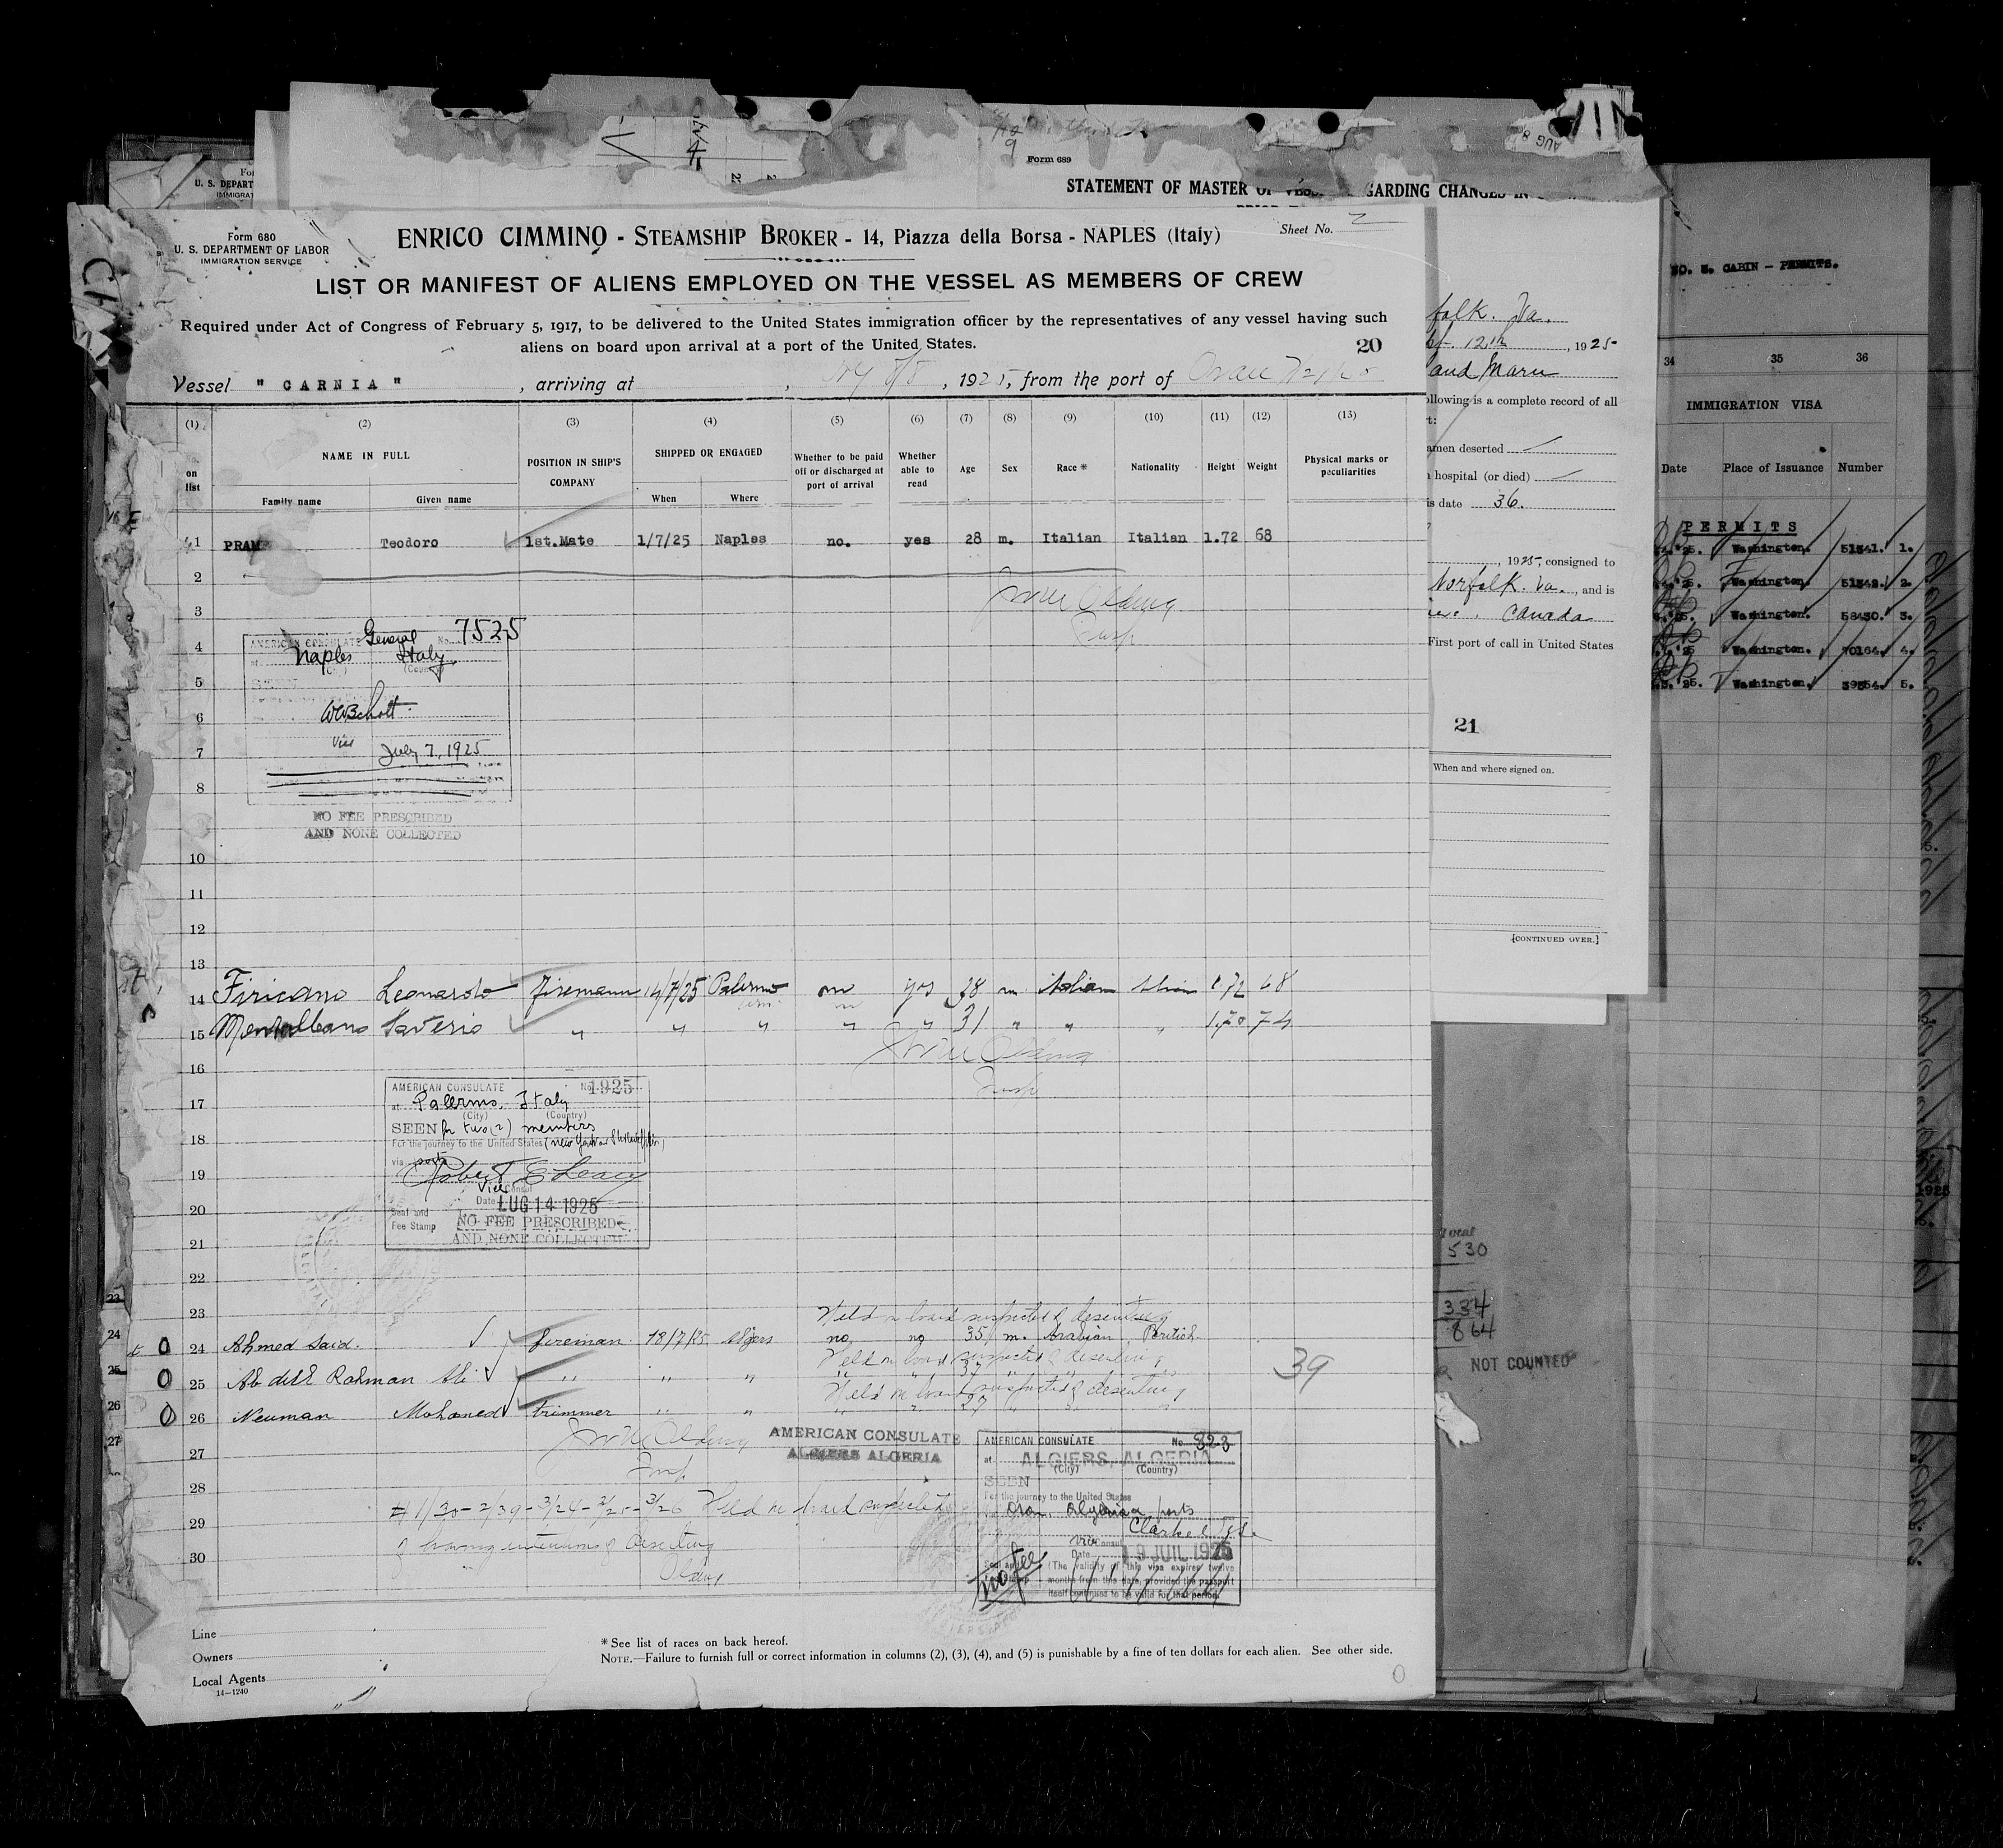 Form 689
STATEMENT OF MASTER OF VESSEL REGARDING CHANGES IN
AUG 8
U. S. DEPART
IMMIGRAT
Form 680
U. S. DEPARTMENT OF LABOR
IMMIGRATION SERVICE
ENRICO CIMMINO - STEAMSHIP BROKER - 14, Piazza della Borsa - NAPLES (Italy)
Sheet No. 2
LIST OR MANIFEST OF ALIENS EMPLOYED ON THE VESSEL AS MEMBERS OF CREW
Required under Act of Congress of February 5, 1917, to be delivered to the United States immigration officer by the representatives of any vessel having such
aliens on board upon arrival at a port of the United States.
20
Vessel " CARNIA " , arriving at NY 8/8, 1925, from the port of Oran 7/21/25
(1) (2) (3) (4) (5) (6) (7) (8) (9) (10) (11) (12) (13)
No. on list NAME IN FULL POSITION IN SHIP'S COMPANY SHIPPED OR ENGAGED Whether to be paid off or discharged at port of arrival Whether able to read Age Sex Race * Nationality Height Weight Physical marks or peculiarities
Family name Given name When Where
1 Teodoro 1st.Mate 1/7/25 Naples no. yes 28 m. Italian Italian 1.72 68
2
3
4
5
6
7
8
AMERICAN CONSULATE General No. 7525
at Naples Italy
(City) (Country)
Vice July 7, 1925
NO FEE PRESCRIBED
AND NONE COLLECTED
10
11
12
13
14 Firicano Leonardo Firemann 14/7/25 Palermo no yes 38 m Italian Italian 1.72 68
15 Saverio " " " " " 31 " " " 1.70 74
16
17
18
19
20
21
22
AMERICAN CONSULATE No. 1925
at Palermo, Italy
(City) (Country)
SEEN for two (2) members
For the journey to the United States
via ports
Robert E Leary
Vice Consul
Date LUG 14 1925
Seal and
Fee Stamp
NO FEE PRESCRIBED
AND NONE COLLECTED
23 Held on board suspected of deserting
24 Ahmed Said. fireman 18/7/25 Algiers no no 35 m. Arabian British
Held on board suspected of deserting
25 Abdul Rahman Ali " " " " " 37 " " "
Held on board suspected of deserting
26 Neuman Mohamed trimmer " " " " 27 " " "
39
27
28
29
30
AMERICAN CONSULATE
ALGIERS ALGERIA
# 1/30 - 2/39 - 3/24 - 3/25 - 3/26 Held on board suspected
of having intentions of deserting
AMERICAN CONSULATE No. 323
at ALGIERS, ALGERIA
(City) (Country)
SEEN
For the journey to the United States
Oran, Algerian ports
Vice Consul
Date 19 JUIL 1925
(The validity of this visa expires twelve
months from this date, provided the passport
itself continues to be valid for that period.)
no fee
Line
Owners
Local Agents
14—1240
* See list of races on back hereof.
NOTE.—Failure to furnish full or correct information in columns (2), (3), (4), and (5) is punishable by a fine of ten dollars for each alien. See other side.
folk. Va.
12th, 1925
and Maru
ollowing is a complete record of all
amen deserted
hospital (or died)
is date 36.
, 1925, consigned to
Norfolk. Va., and is
Canada
First port of call in United States
21
When and where signed on.
[CONTINUED OVER.]
Total
530
334
864
NOT COUNTED
NO. 5. CABIN - PERMITS.
34 35 36
IMMIGRATION VISA
Date Place of Issuance Number
PERMITS
'25. Washington. 51341. 1.
'25. Washington. 51342. 2.
'25. Washington. 58430. 3.
'25 Washington. 70164. 4.
'25. Washington. 39554. 5.
1925